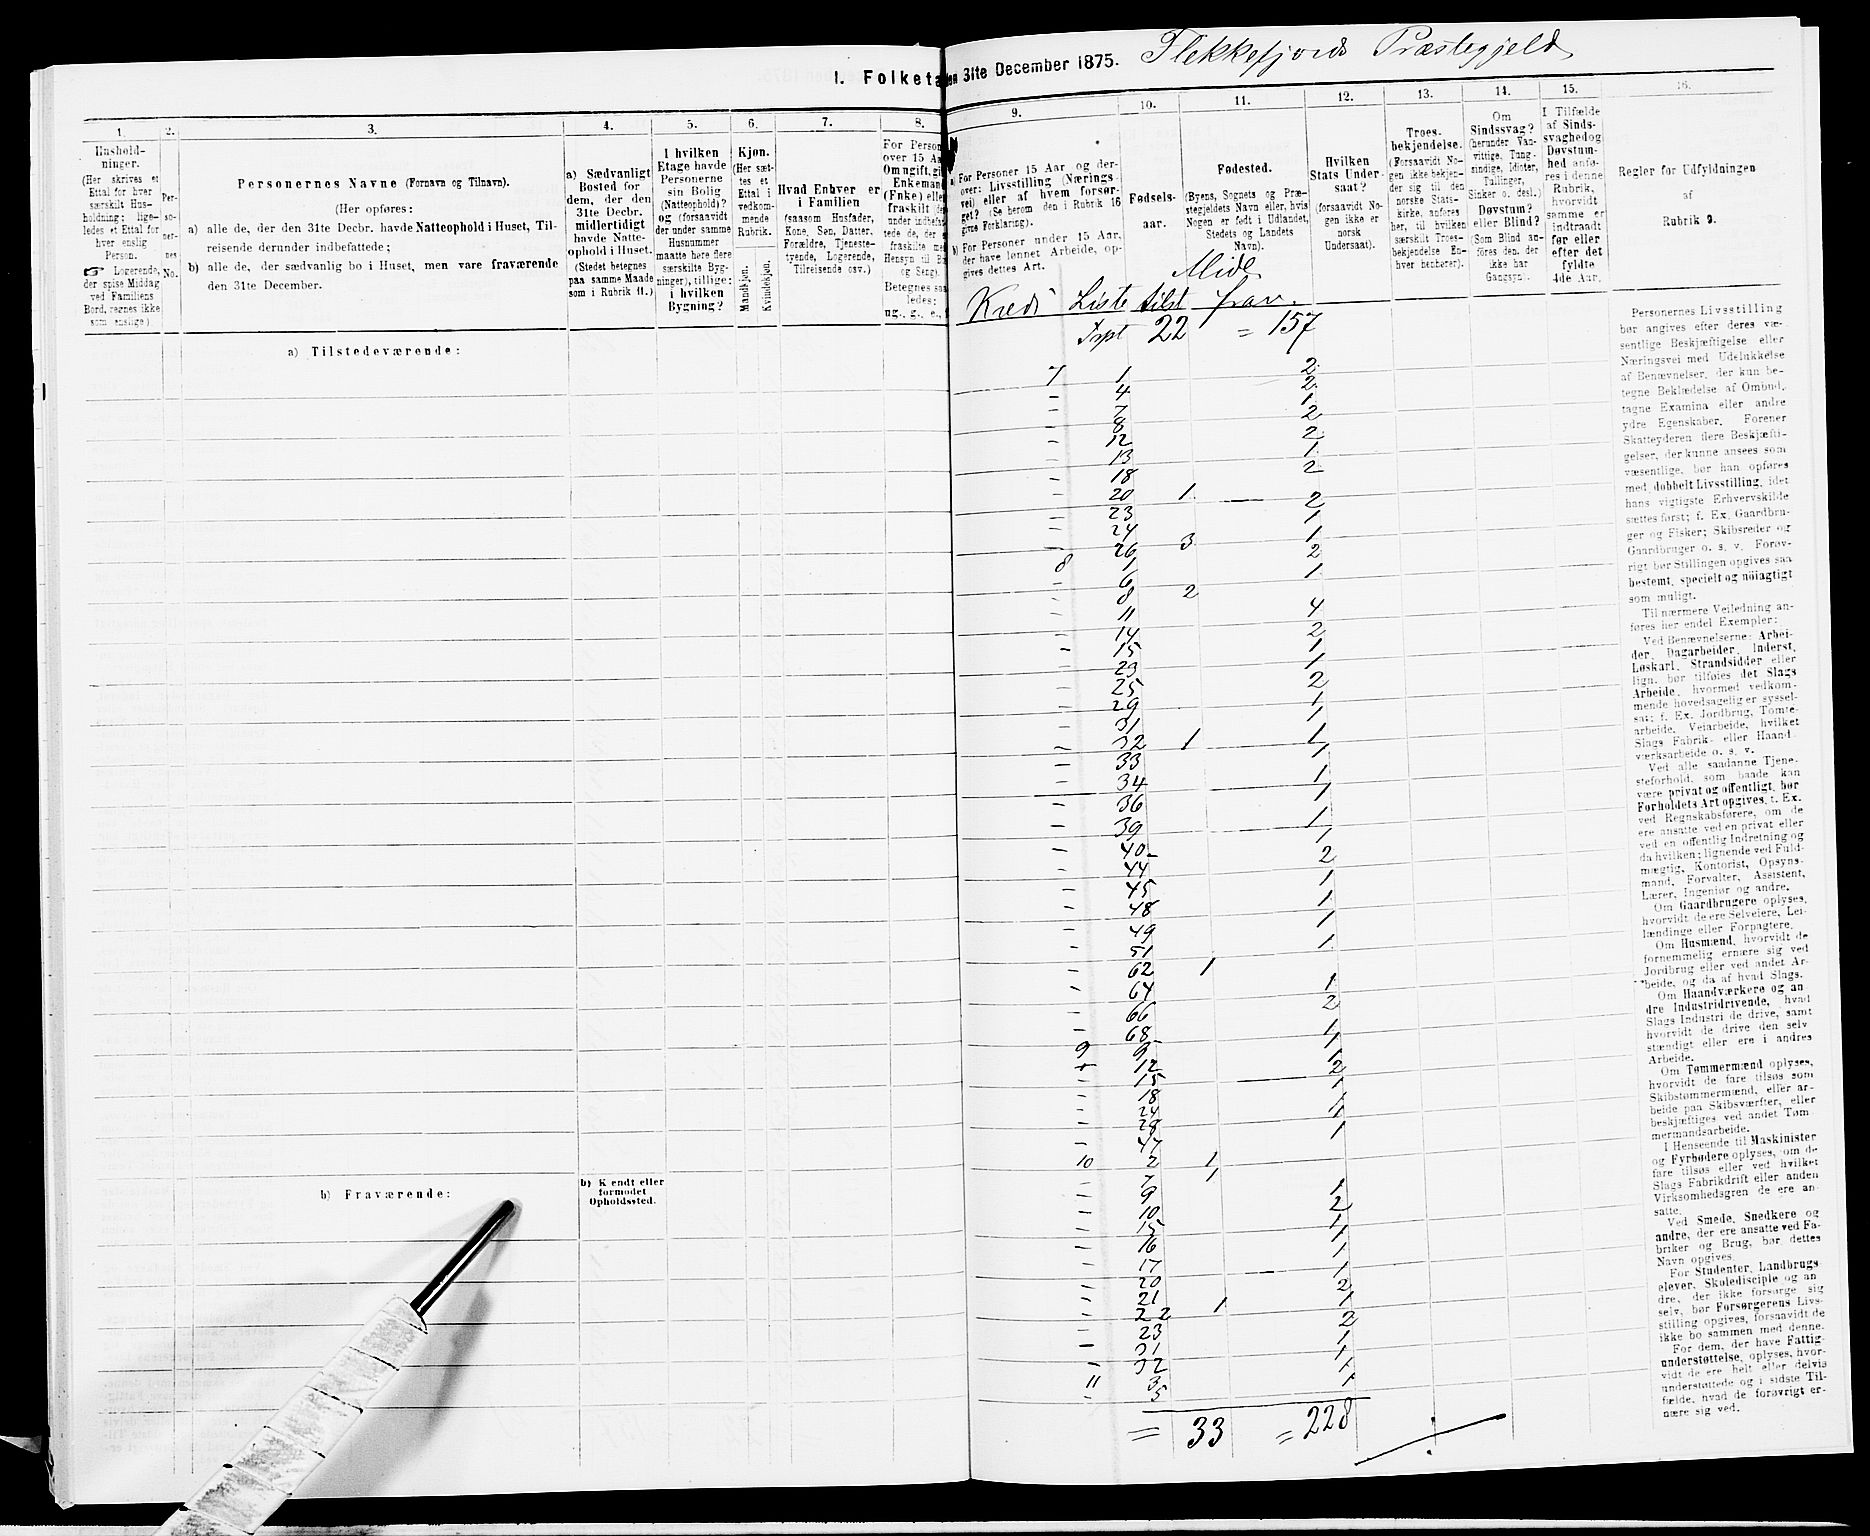 1. Folketæ
en 31te December 1875. Flekkefjords Præstegjeld
1.
Hushold-
ninger.
(Her skrives et
Ettal for hver
særskilt Hus-
holdning; lige-
ledes et Ettal for
hver enslig
Person.
☞ Logerende,
der spise Middag
ved Familiens
Bord, regnes ikke
som enslige.)
2.
Per-
so-
ner-
nes
No.
3.
Personernes Navne (Fornavn og Tilnavn).
(Her opføres:
a) alle de, der den 31te Decbr. havde Natteophold i Huset, Til-
reisende derunder indbefattede;
b) alle de, der sædvanlig bo i Huset, men vare fraværende
den 31te December.
4.
a) Sædvanligt
Bosted for
dem, der den
31te Decbr.
midlertidigt
havde Natte-
ophold i Huset.
(Stedet betegnes
paa samme Maade
som i Rubrik 11.)
5.
I hvilken
Etage havde
Personerne
sin Bolig
(Natteophold)?
og (forsaavidt
der under samme
Husnummer
maatte høre flere
særskilte Byg-
ninger), tillige:
i hvilken
Bygning?
6.
Kjøn.
(Her sæt-
tes et
Ettal i
vedkom-
mende
Rubrik.
Mandkjøn.
Kvindekjøn.
7.
Hvad Enhver er
i Familien
(saasom Husfader,
Kone, Søn, Datter,
Forældre, Tjeneste-
tyende, Logerende,
Tilreisende osv.)
8.
For Person
over 15 Aa
Om ugift, gi
Enkeman
(Enke) eller
fraskilt
under indbefat
tede de, der e
fraskilte me
Hensyn til B
og Seng).
Betegnes saa
ledes:
ug., g., e.,
9.
For Personer 15 Aar og der-
over: Livsstilling (Nærings-
vei) eller af hvem forsør-
get? (Se herom den i Rubrik 16
givne Forklaring).
b) For Personer under 15 Aar,
der have lønnet Arbeide, op-
gives dettes Art.
10.
Fødsels-
aar.
11.
Fødested.
(Byens, Sognets og Præ-
stegjeldets Navn eller, hvis
Nogen er født i Udlandet,
Stedets og Landets
Navn).
12.
Hvilken
Stats Under-
saat?
(forsaavidt No-
gen ikke er
norsk
Undersaat).
13.
Troes-
bekjendelse.
(Forsaavidt No-
gen ikke bekjen-
der sig til den
norske Stats-
kirke, anføres
her, til hvilken
særskilt Troes-
bekjendelse En-
hver henhører).
14.
Om
Sindssvag?
(herunder Van-
vittige, Tung-
sindige, Idioter,
Tullinger,
Sinker o. desl.)
Døvstum?
eller Blind?
(Som Blind an-
føres den, der
ikke har
Gangsyn).
15.
I Tilfælde
af Sinds-
svaghedog
Døvstum-
hed anfø-
res i denne
Rubrik,
hvorvidt
samme er
indtraadt
før eller
efter det
fyldte
4de Aar.
16.
Regler for Udfyldningen
af
Rubrik 9.
Midl
Kreds Liste tilst frav.
Trpt 22 = 157
a) Tilstedeværende:
7 1 2
" 4 2
" 7 1
" 8 2
" 12 2
" 13 1
" 18 2
" 20 1
" 23 2
" 24 1
" 26 3 1
8 1 2
" 6 1
" 8 2
" 11 4
" 14 2
" 15 1
" 23 1
" 25 2
" 29 1
" 31 1
" 32 1 1
" 33 1
" 34 1
" 36 1
" 39 1
" 40 1
" 44 2
" 45 1
" 48 1
" 49 1
" 51 1
" 62 1
" 64 1
" 66 2
" 68 1
9 9 1
" 12 1
" 15 2
" 18 1
" 24 1
" 28 1
" 47 1
10 2 1
" 7 1
" 9 1
" 10 2
" 15 1
" 16 1
" 17 1
" 20 1
" 21 2
" 22 1 1
" 23 2
" 31 1
" 32 1
11 3 1
" 5 1
= 33 = 228
b) Fraværende:
b) Kjendt eller
formodet
Opholdssted.
Personernes Livsstilling
bør angives efter deres væ-
sentlige Beskjæftigelse eller
Næringsvei med Udelukkelse
af Benævnelser, der kun be-
tegne Beklædelse af Ombud,
tagne Examina eller andre
ydre Egenskaber. Forener
Skatteyderen flere Beskjæfti-
gelser, der kunne ansees som
væsentlige, bør han opføres
med dobbelt Livsstilling, idet
hans vigtigste Erhvervskilde
sættes først; f. Ex. Gaardbru-
ger og Fisker; Skibsreder og
Gaardbruger o. s. v. Forøv-
rigt bør Stillingen opgives saa
bestemt, specielt og nöiagtigt
som muligt.
Til nærmere Veiledning an-
føres her endel Exempler:
Ved Benævnelserne: Arbei-
der, Dagarbeider, Inderst,
Løskarl, Strandsidder eller
lign. bør tilføies det Slags
Arbeide, hvormed vedkom-
mende hovedsagelig er syssel-
sat; f. Ex. Jordbrug, Tomte-
arbeide, Veiarbeide, hvilket
Slags Fabrik- eller Haand-
værksarbeide o. s. v.
Ved alle saadanne Tjene-
steforhold, som baade kan
være privat og offentligt, bør
Forholdets Art opgives, t. Ex.
ved Regnskabsførere, om de
ere ansatte ved en privat eller
ved en offentlig Indretning og
da hvilken; lignende ved Fuld-
mægtig, Kontorist, Opsyns-
mand, Forvalter, Assistent,
Lærer, Ingeniør og andre.
Om Gaardbrugere oplyses,
hvorvidt de ere Selveiere, Lei-
lændinge eller Forpagtere.
Om Husmænd, hvorvidt de
fornemmelig ernære sig ved
Jordbrug eller ved andet Ar-
beide, og da af hvad Slags.
Om Haandværkere og an-
dre Industridrivende, hvad
Slags Industri de drive, samt
hvorvidt de drive den selv-
stændigt eller ere i andres
Arbeide.
Om Tømmermænd oplyses,
hvorvidt de fare tilsøs som
Skibstømmermænd, eller ar-
beide paa Skibsværfter, eller
beskjæftiges ved andet Tøm-
mermandsarbeide.
I Henseende til Maskinister
og Fyrbødere oplyses, om de
fare tilsøs eller ved hvilket
Slags Fabrikdrift eller anden
Virksomhedsgren de ere an-
satte.
Ved Smede, Snedkere og
andre, der ere ansatte ved Fa-
briker og Brug, bør dettes
Navn opgives.
For Studenter, Landbrugs-
elever, Skoledisciple og an-
dre, der ikke forsørge sig
selv, bør Forsørgerens Livs-
stilling opgives, forsaavidt de
ikke bo sammen med denne.
For dem, der have Fattig-
understøttelse, oplyses, hvor-
vidt de ere helt eller delvis
understøttede og i sidste Til-
fælde, hvad de forøvrigt er-
nære sig ved.